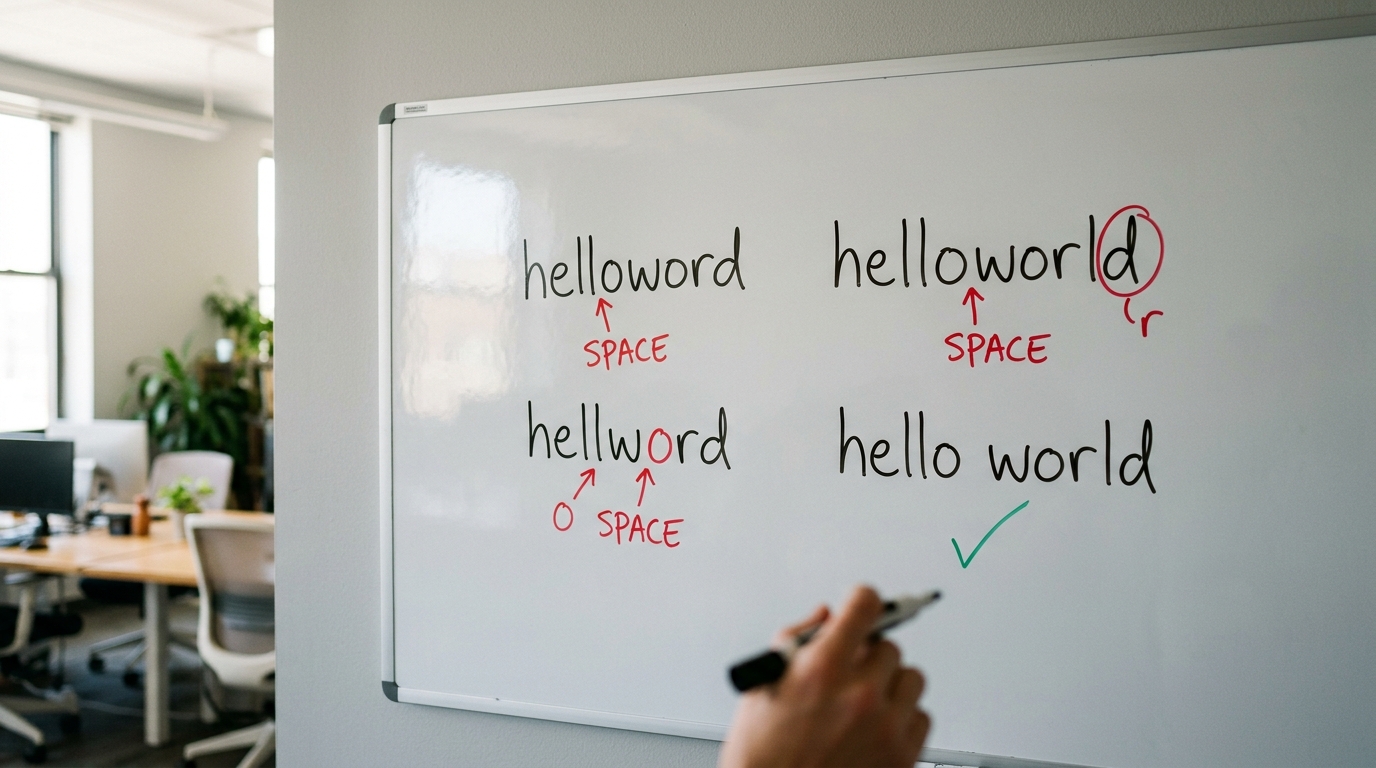 helloword
SPACE
helloworld
SPACE
r
hellword
O SPACE
hello world